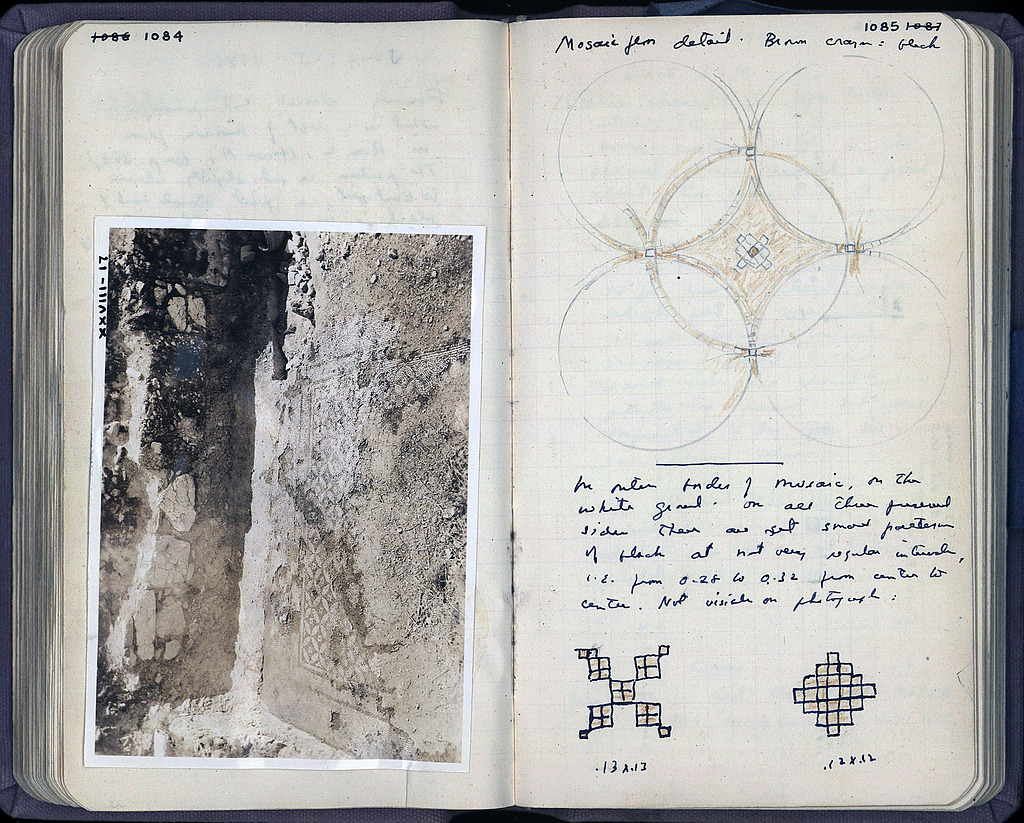 1086 1084
XXXVIII-17
1085 1087
Mosaic from detail. Brown crayon = black
In outer border of mosaic, on the
white ground. On all three preserved
sides there are set small patterns
of black at not very regular intervals,
i.e. from 0.28 to 0.32 from center to
center. Not visible on photograph:
.13 x .13
.12 x .12